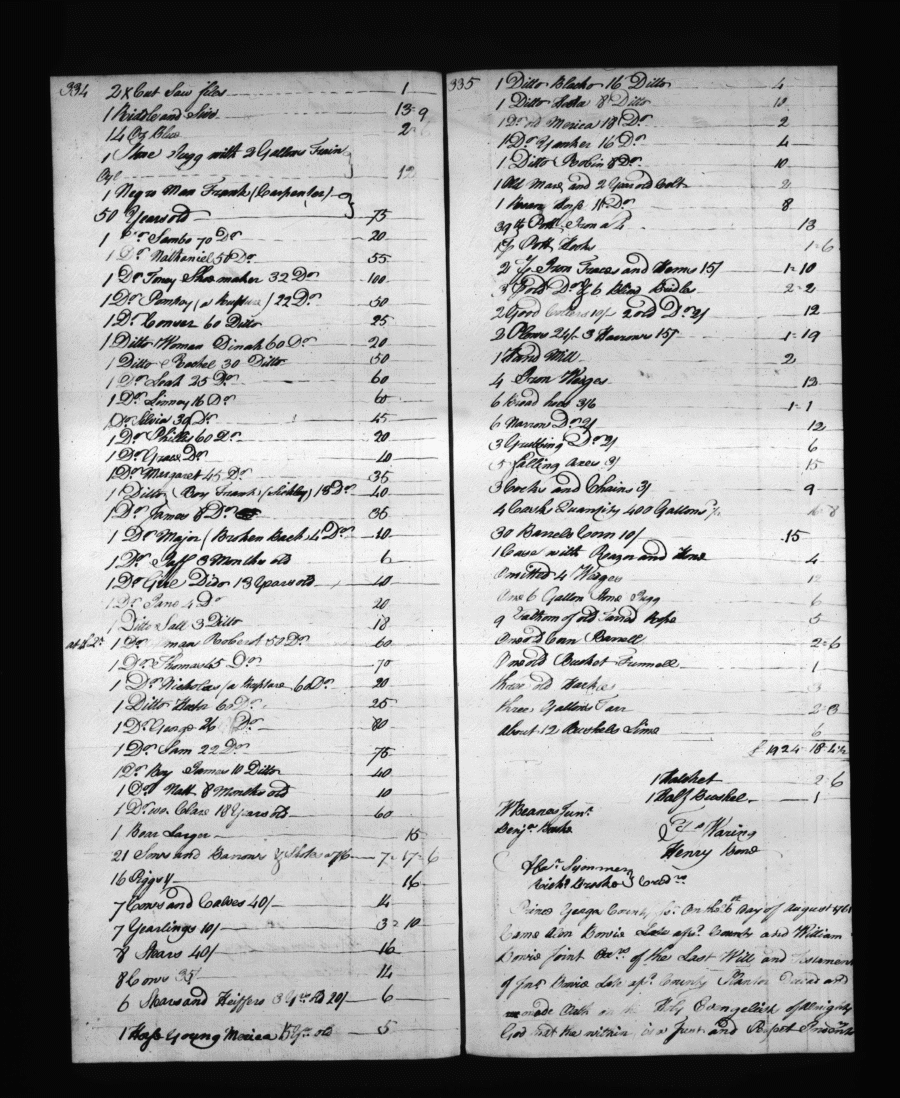 334
2 X Cut Saw files 1
1 Riddle and Sive 13=9
14 Oz Blue 2
1 Stone Jugg with 2 Gallons Train
Oyl 12
1 Negro Man Frank (Carpenter)
50 Years old 75
1 Do. Sambo 70 Do. 20
1 Do. Nathaniel 50 Do. 55
1 Do. Toney Shoemaker 32 Do. 100
1 Do. Pompey (a Rupture) 22 Do. 50
1 Do. 60 Ditto 25
1 Ditto Woman Dinah 60 Do. 20
1 Ditto Rachel 30 Ditto 50
1 Do. Leah 25 Do. 60
1 Do. Linney 16 Do. 60
1 Do. Silvia 39 Do. 45
1 Do. Phillis 60 Do. 20
1 Do. Grace Do. 40
1 Do. Margaret 45 Do. 35
1 Ditto Boy Frank (Sickley) 18 Do. 40
1 Do. James 8 Do. 36
1 Do. Major (Broken Back 4 Do. 10
1 Do. 3 Months old 6
1 Do. Girl Dido 13 Years old 40
1 Do. Jane 4 Do. 20
1 Ditto Sall 3 Ditto 18
1 Do. man Robert 50 Do. 60
1 Do. Thomas 45 Do. 70
1 Do. Nicholas (a Rupture 60 Do. 20
1 Ditto 60 Do. 25
1 Do. George 26 Do. 80
1 Do. Sam 22 Do. 75
1 Do. Boy James 10 Ditto 40
1 Do. Natt 8 Months old 10
1 Do. wo. Clare 18 Years old 60
1 Boar Larger 15
21 Sows and Barrows & Shotes 7=17=6
16 Piggs 16
7 Cows and Calves 40/ 14
7 Yearlings 10/ 3=10
8 Stears 40/ 16
8 Cows 35/ 14
6 Stears and Heiffers 3 Yrs. old 20/ 6
1 Horse Young Merica Yrs. old 5
335
1 Ditto 16 Ditto 4
1 Ditto 8 Ditto 13
1 Do. Merica 18 Do. 2
1 Do. Yonker 16 Do. 4
1 Ditto Robin 8 Do. 10
1 Old Mare and 2 Year old Colt 2
1 Horse 11 Do. 8
39 lb Pott Iron a 4 13
1 pr Pott Hooks 1=6
2 pr Iron Traces and Hems 15/ 1=10
3 Do. & 6 Blind Bridles 2=2
2 Good 10/ 2 old Do. 2/ 12
2 Plows 24/ 3 Harrows 15/ 1=19
1 Hand Mill 2
4 Iron Wedges 12
6 Broad hoes 3/6 1=1
6 Narrow Do. 2/ 12
3 Grubbing Do. 2/ 6
5 Falling Axes 3/ 15
3 Locks and Chains 3/ 9
4 Casks Quantity 400 Gallons
30 Barrels Corn 10/ 15
1 Case with Razor and Hone 4
Omitted 4 Wedges 12
One 6 Gallon Stone Jugg 6
9 Fathom of old Tarred Rope 5
One old Barrell 2=6
One old Bucket Funnell 1
three old 3
three Gallons Tarr 2=3
about 12 Bushels Lime 6
£ 1924=18=4½
1 Hatchet 2=6
1 Half Bushel 1
W Beanes Junr.
Benjn. Waring
Henry Bond
Symmer
Richd. Brooke Credrs.
Prince Georges County On the 6th day of August
Came Allen Bowie Late County and William
Bowie Joint of the Last Will and Testament
of Bowie Late County Planter and
made Oath on the Holy Evangelist of Almighty
God that the within is a Just and Perfect